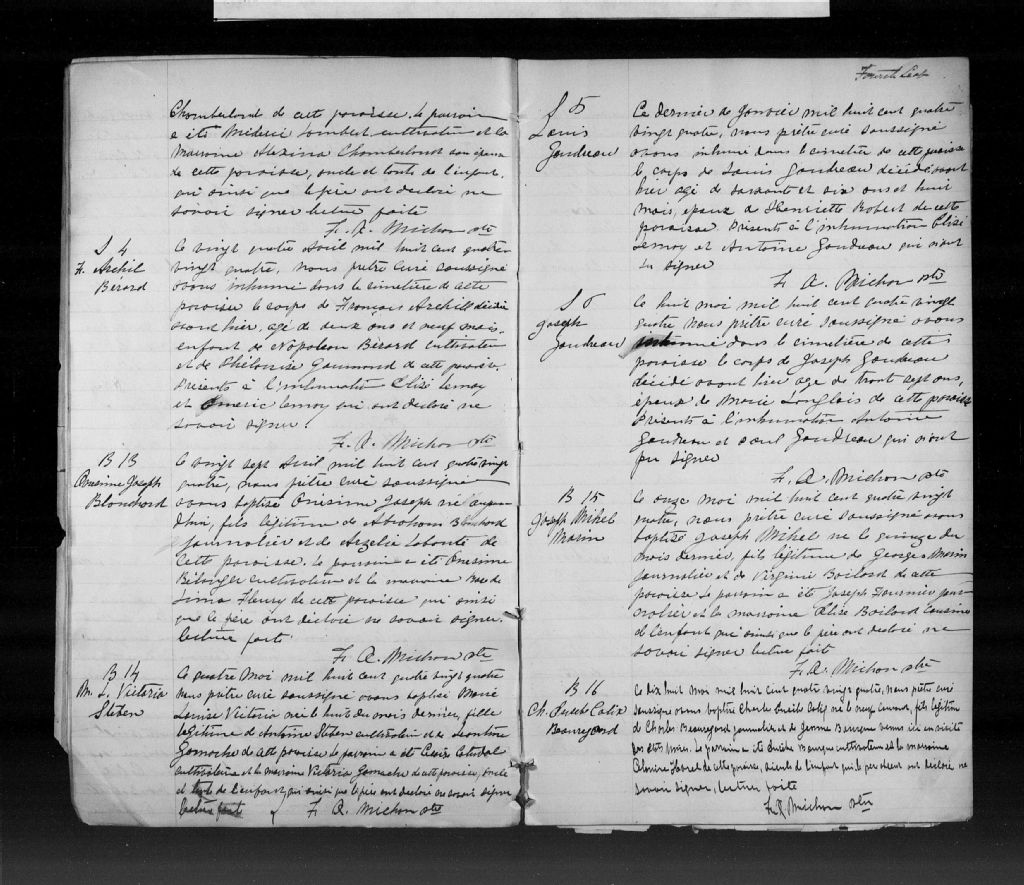 Chamberland de cette paroisse. Le parrain
a été Mederic Lambert cultivateur et la
marraine Alexina Chamberland son épouse
de cette paroisse, oncle et tante de l'enfant,
qui ainsi que le père ont déclaré ne
savoir signer lecture faite
F. A. Michon ptre
S 4
F. Archil
Berard
Le vingt quatre Avril mil huit cent quatre
vingt quatre, nous prêtre curé soussigné
avons inhumé dans le cimetière de cette
paroisse le corps de François Archill décédé
avant hier, agé de deux ans et neuf mois,
enfant de Napoléon Bérard cultivateur
et de Philonise de cette paroisse.
Présents à l'inhumation Elisé Lemay
et Americ Lemay qui ont déclaré ne
savoir signer.
F. A. Michon ptre
B 13
Onesime Joseph
Blanchard
Le vingt sept Avril mil huit cent quatre vingt
quatre, nous prêtre curé soussigné
avons baptisé Onesime Joseph né aujour-
d'hui, fils légitime de Abraham Blanchard
journalier et de Arzelie Labonté de
cette paroisse. Le parrain a été Onesime
Bélanger cultivateur et la marraine Rose de
Lima Fleury de cette paroisse qui ainsi
que le père ont déclaré ne savoir signer.
lecture faite.
F. A. Michon ptre
B 14
M. L. Victoria
Steben
Le quatre Mai mil huit cent quatre vingt quatre
nous prêtre curé soussigné avons baptisé Marie
Louise Victoria née le huit du mois dernier, fille
légitime de Antoine Steben cultivateur et de Leontine
Gamache de cette paroisse le parrain a été
cultivateur et la marraine Victoria Gamache de cette paroisse, oncle
et tante de l'enfant, qui ainsi que le père ont déclaré ne savoir signer
lecture faite
F. A. Michon ptre
Fourth Leaf
S 5
Louis
Gaudreau
Le dernier de Janvier mil huit cent quatre
vingt quatre, nous prêtre curé soussigné
avons inhumé dans le cimetière de cette paroisse
le corps de Louis Gaudreau décédé avant
hier agé de soixante et six ans et huit
mois, époux de Henriette Robert de cette
paroisse. Présents à l'inhumation Elisé
Lemay et Antoine Gaudreau qui n'ont
su signer
F. A. Michon ptre
S 6
Joseph
Gaudreau
Le huit Mai mil huit cent quatre vingt
quatre nous prêtre curé soussigné avons
inhumé dans le cimetière de cette
paroisse le corps de Joseph Gaudreau
décédé avant hier agé de trente sept ans,
époux de Marie Langlais de cette paroisse
Présents à l'inhumation Antoine
Gaudreau et Paul Gaudreau qui n'ont
pu signer
F. A. Michon ptre
B 15
Joseph Mihel
Marin
Le onze Mai mil huit cent quatre vingt
quatre, nous prêtre curé soussigné avons
baptisé Joseph Mihel né le quinze du
mois dernier, fils légitime de Georges Marin
journalier et de Virginie Boilard de cette
paroisse le parrain a été Joseph Fournier jour-
nalier et la marraine Elise Boilard cousine
de l'enfant qui ainsi que le père ont déclaré ne
savoir signer lecture fait
F. A. Michon ptre
B 16
Ch. Calix
Beauregard
Le dix huit Mai mil huit cent quatre vingt quatre, nous prêtre curé
soussigné avons baptisé Charle Calix né le neuf courant, fils légitime
de Charles Beauregard journalier et de
par cette paroisse. Le parrain a été cultivateur et la marraine
de cette paroisse, de l'enfant qui, le père absent ont déclaré ne
savoir signer, lecture faite
F. A. Michon ptre